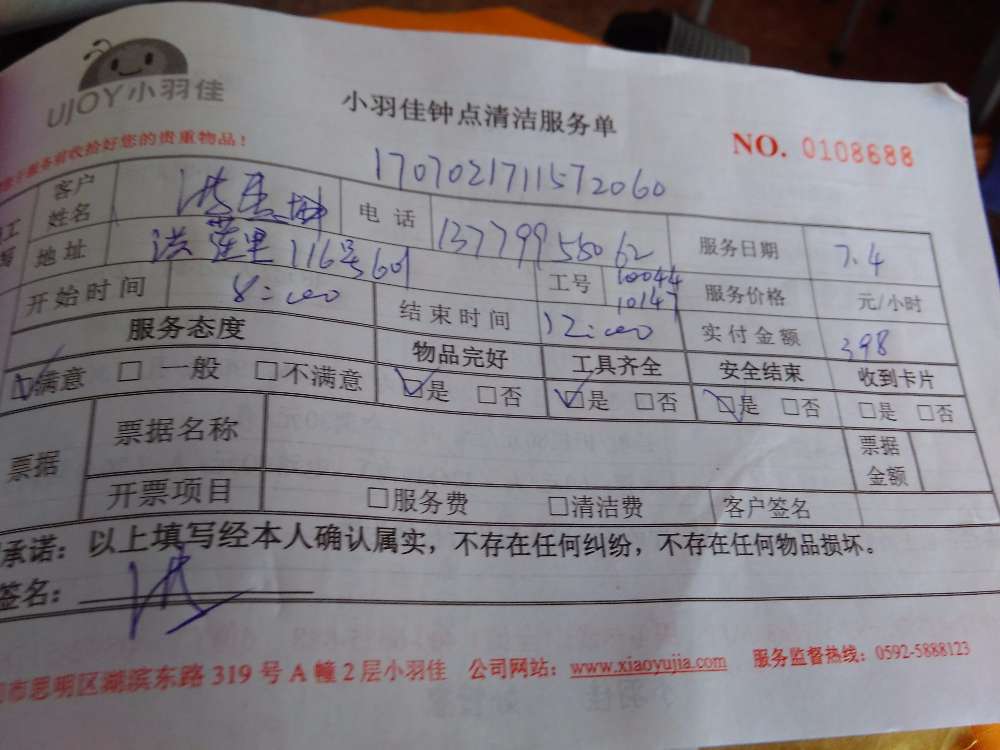 UJOY小羽佳
小羽佳钟点清洁服务单
NO. 0108688
服务前收拾好您的贵重物品！
1707021711572060
客户姓名 洪 电话 13779955062 服务日期 7.4
地址 洪莲里116号601 工号 10044 10147 服务价格 元/小时
开始时间 8:00 结束时间 12:00 实付金额 398
服务态度 物品完好 工具齐全 安全结束 收到卡片
☑满意 □一般 □不满意 ☑是 □否 ☑是 □否 ☑是 □否 □是 □否
票据 票据名称 票据金额
开票项目 □服务费 □清洁费 客户签名
承诺：以上填写经本人确认属实，不存在任何纠纷，不存在任何物品损坏。
签名： 洪
市思明区湖滨东路 319 号 A 幢 2 层小羽佳 公司网站：www.xiaoyujia.com 服务监督热线：0592-5888123